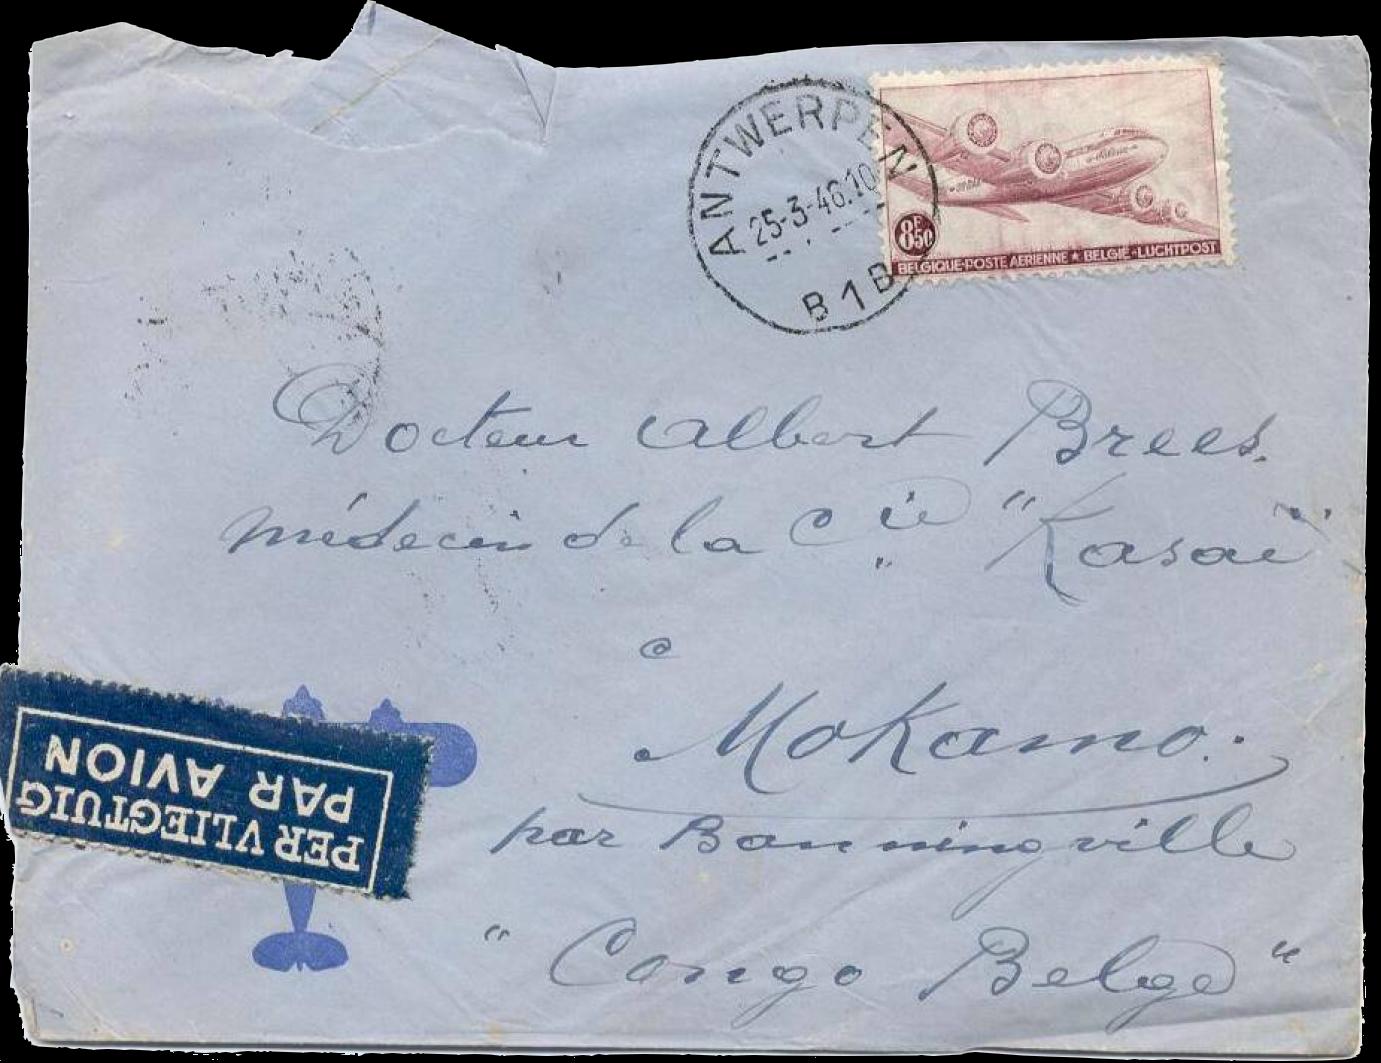 ANTWERPEN
25-3-48.10
B 1 B
8F50
BELGIQUE-POSTE AERIENNE ★ BELGIË-LUCHTPOST
Docteur Albert Brees.
médecin de la Cie "Kasaï"
à
Mokamo.
par Banningville
"Congo Belge"
PER VLIEGTUIG
PAR AVION